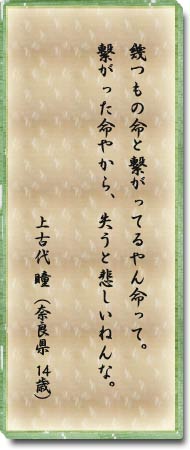 幾つもの命と繋がってるやん命って。
繋がった命やから、失うと悲しいねんな。
上古代 瞳 (奈良県 14歳)